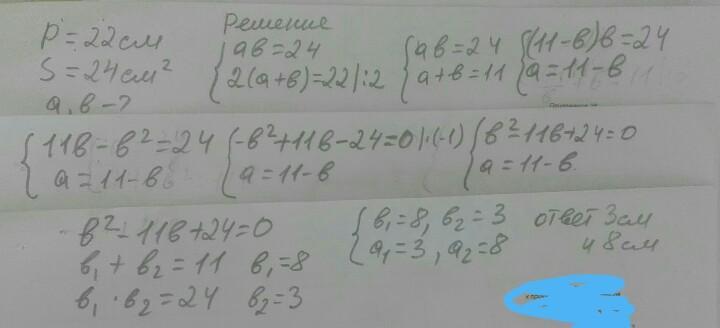 P = 22 см
S = 24 см²
а, в - ?
Решение
{ ав = 24
{ 2(а+в) = 22 |:2
{ ав = 24
{ а+в = 11
{ (11-в)в = 24
{ а = 11-в
{ 11в - в² = 24
{ а = 11-в
{ -в²+11в-24=0 |·(-1)
{ а = 11-в
{ в²-11в+24=0
{ а = 11-в
в²-11в+24=0
в₁ + в₂ = 11 в₁=8
в₁ · в₂ = 24 в₂=3
{ в₁=8, в₂=3
{ а₁=3, а₂=8
ответ 3см
и 8см